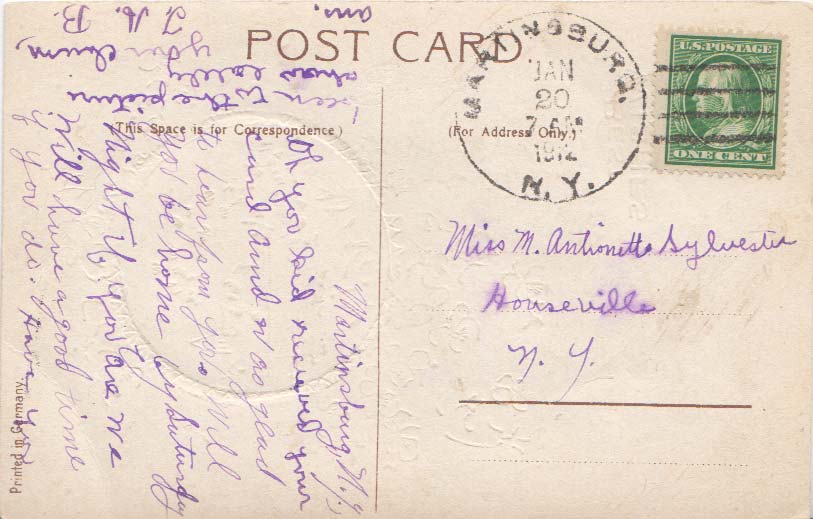 POST CARD
(This Space is for Correspondence)
(For Address Only.)
MARTINSBURG.
JAN
20
7 AM
1912
N. Y.
U.S. POSTAGE
ONE CENT
Miss M. Antionette Sylvester
Houseville
N. Y.
Martinsburg, N.Y.
Oh you kid recieved your
card and was glad
to hear from you. Will
you be home by Saturday
Night If you are we
Will have a good time
if you do. Have you
been to the picture
show lately
your chum,
F. A. B.
ans.
Printed in Germany.